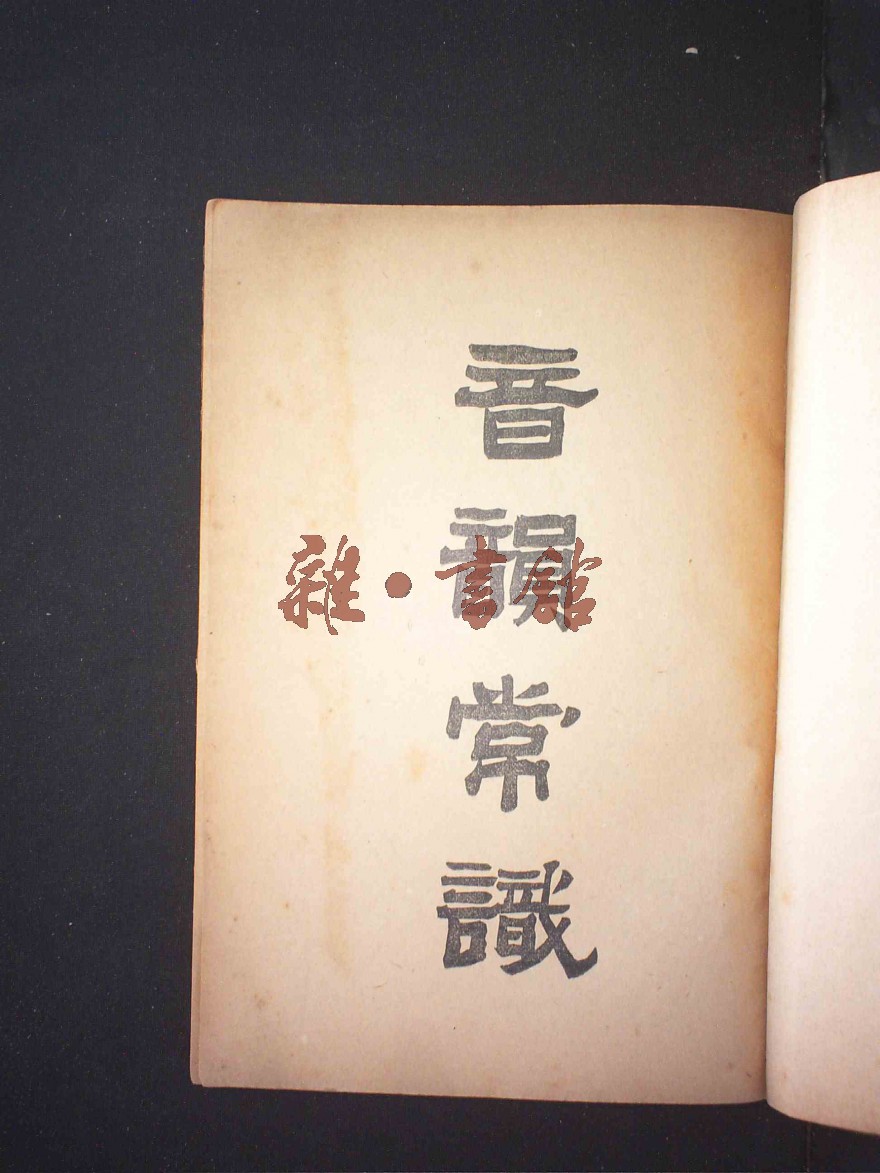 音韻常識
雜·書館